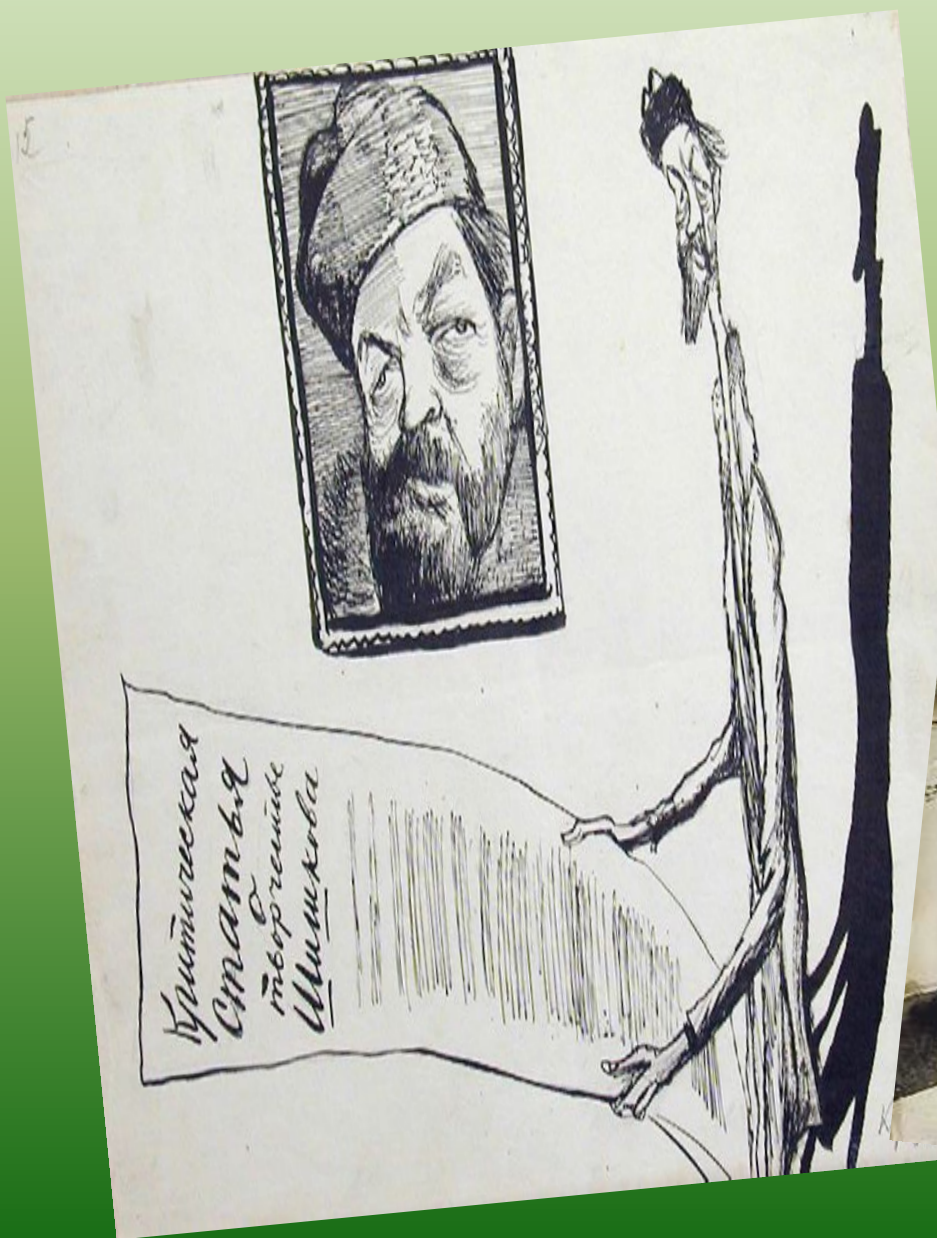 Критическая
Статья
о
творчестве
Шишкова